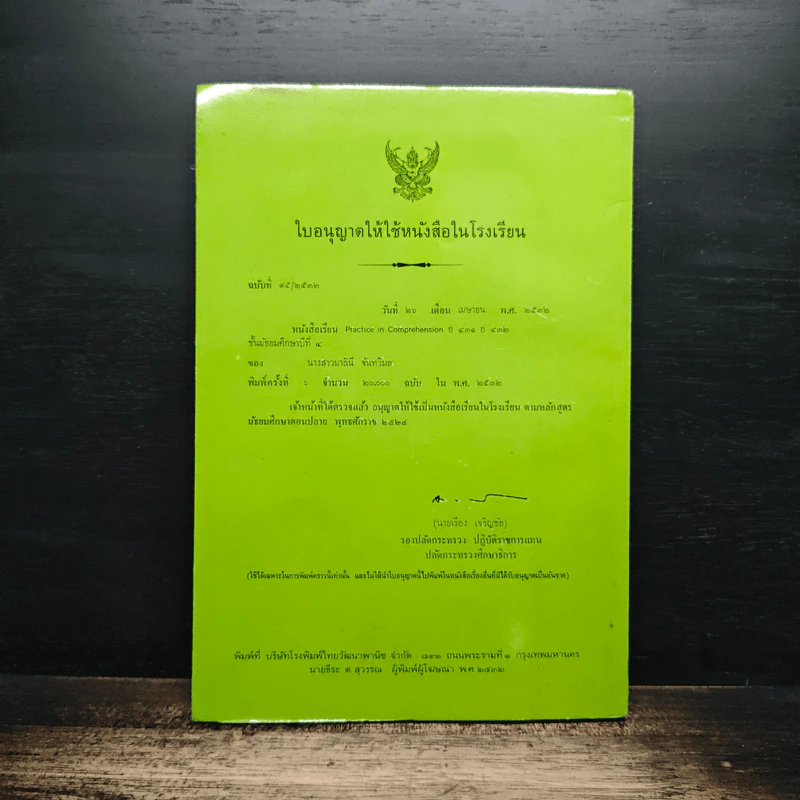 ใบอนุญาตให้ใช้หนังสือในโรงเรียน
ฉบับที่ ๙๕/๒๕๓๒
วันที่ ๒๖ เดือน เมษายน พ.ศ. ๒๕๓๒
หนังสือเรียน Practice in Comprehension อ ๔๓๑ อ ๔๓๒
ชั้นมัธยมศึกษาปีที่ ๔
ของ นางสาวมาลินี จันทวิมล
พิมพ์ครั้งที่ ๖ จำนวน ๒๐,๐๐๐ ฉบับ ใน พ.ศ. ๒๕๓๒
เจ้าหน้าที่ได้ตรวจแล้ว อนุญาตให้ใช้เป็นหนังสือเรียนในโรงเรียน ตามหลักสูตร
มัธยมศึกษาตอนปลาย พุทธศักราช ๒๕๒๔
(นายเรือง เจริญชัย)
รองปลัดกระทรวง ปฏิบัติราชการแทน
ปลัดกระทรวงศึกษาธิการ
(ใช้ได้เฉพาะในการพิมพ์คราวนี้เท่านั้น และไม่ให้นำใบอนุญาตนี้ไปพิมพ์ในหนังสือเรื่องอื่นที่มิได้รับอนุญาตเป็นอันขาด)
พิมพ์ที่ บริษัทโรงพิมพ์ไทยวัฒนาพานิช จำกัด ๘๙๑ ถนนพระรามที่ ๑ กรุงเทพมหานคร
นายธีระ ต. สุวรรณ ผู้พิมพ์ผู้โฆษณา พ.ศ. ๒๕๓๒